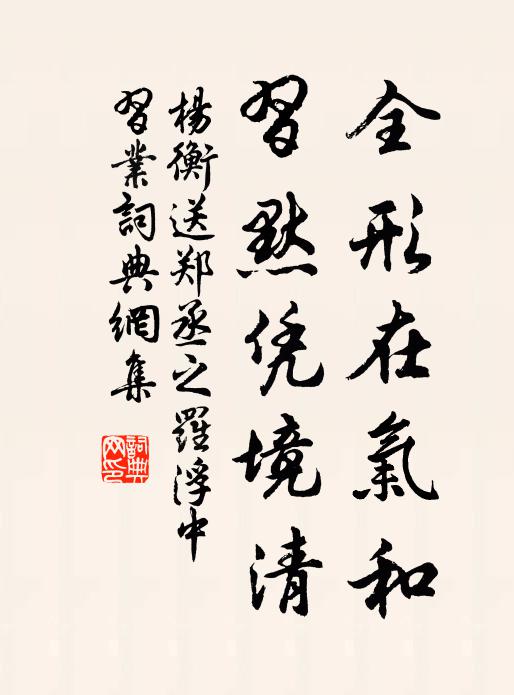 全形在氣和
習默凭境清
楊衡送郑丞之羅浮中
習業詞典網集
詞典
网印